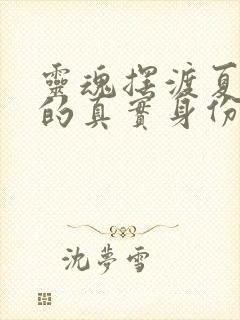 靈魂擺渡夏
的真實身份
沈夢雪